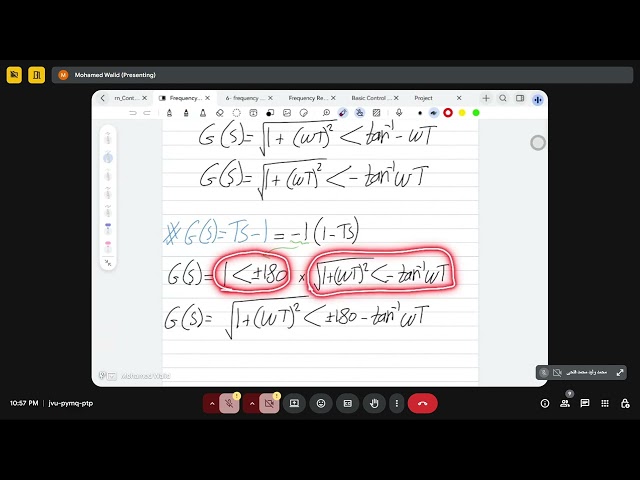 Mohamed Walid (Presenting)
rn_Cont... Frequency... 6- frequency ... Frequency Re... Basic Control ... Project
G(S)=√1+(ωT)² < tan⁻¹ - ωT
G(S)=√1+(ωT)² < - tan⁻¹ωT
※ G(S)=TS-1 = -1(1-TS)
G(S)= 1<±180 × √1+(ωT)² < - tan⁻¹ωT
G(S)= √1+(ωT)² < ±180 - tan⁻¹ωT
Mohamed Walid
محمد وليد محمد فتحي
10:57 PM jvu-pymq-ptp
9